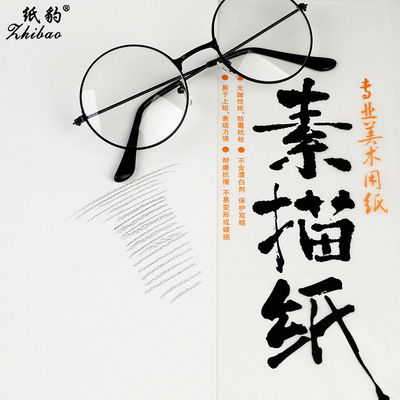 纸豹®
Zhibao
专业美术用纸
素描纸
●无酸性纸、防霉抗蛀
●不含漂白剂 保护双眼
●易于上铅、表现力强
●耐磨抗擦 不易变形或破损